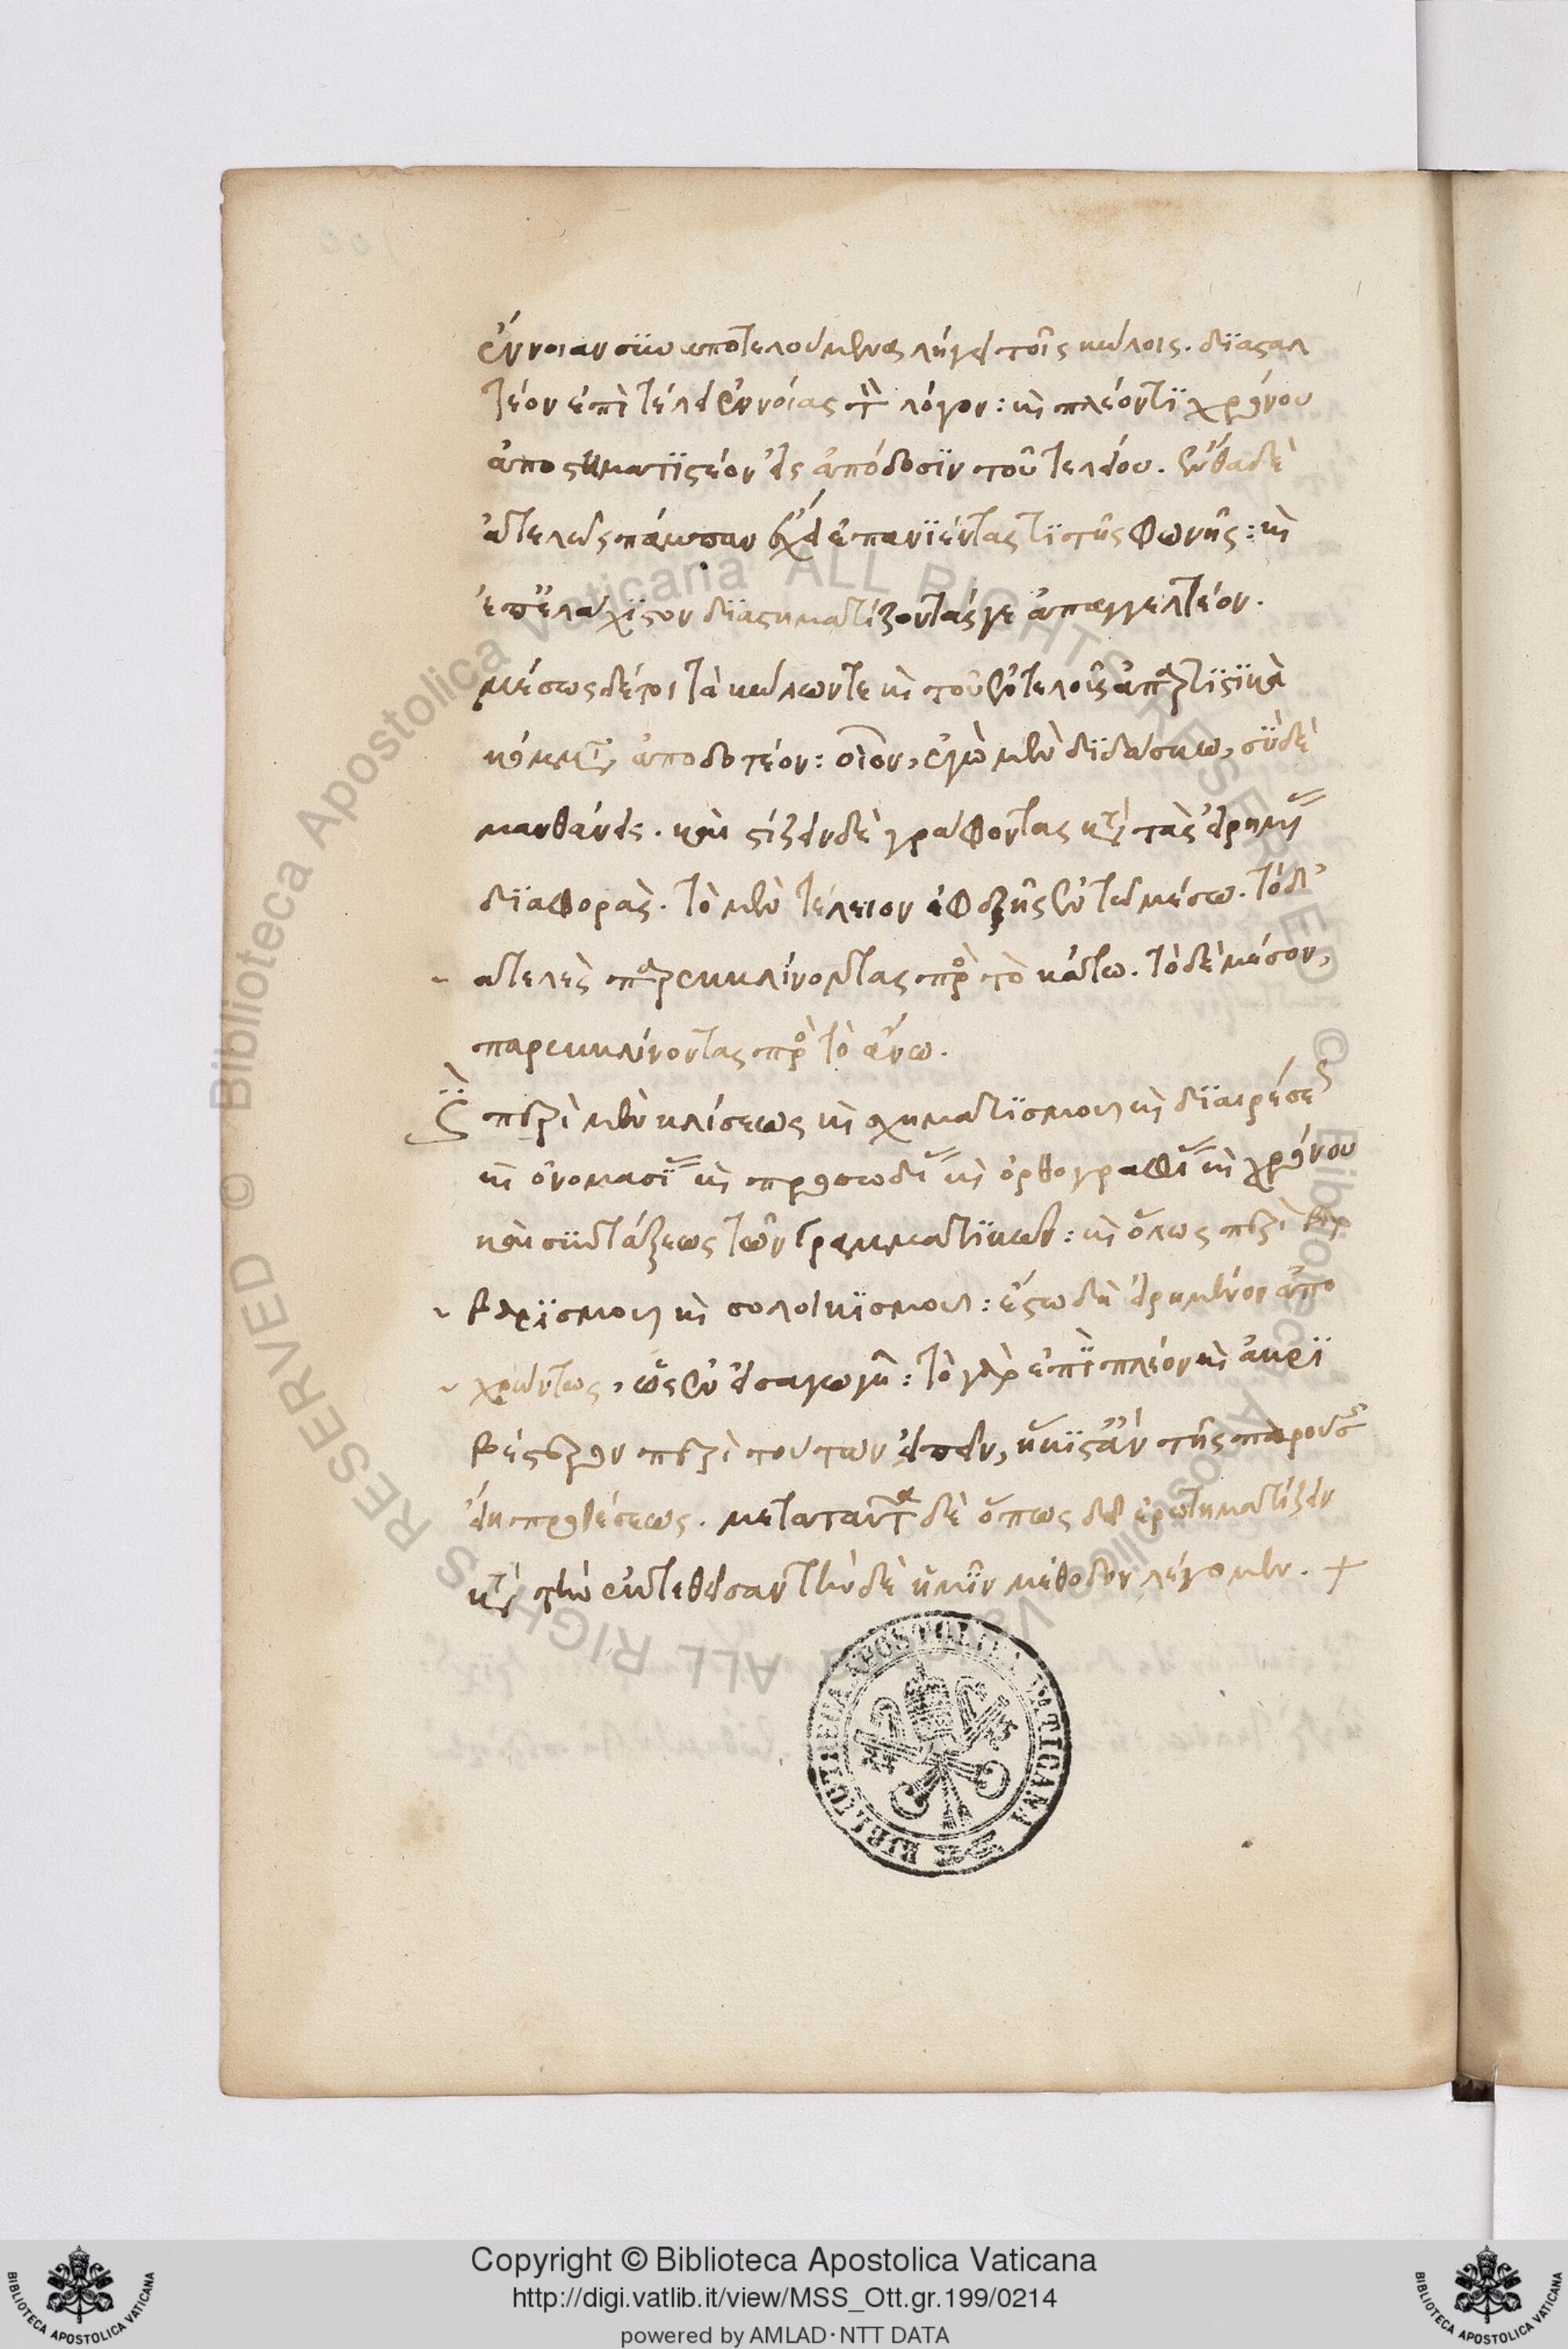 ἔννοιαν σὺν ἀποτελουμένας λήγει τοῖς κώλοις. διασταλ
τέον ἐπὶ τελεί ἐννοίας τὸν λόγον: καὶ πλέον τι χρόνου
ἀποστιματιστέον εἰς ἀπόδοσιν τοῦ τελείου. ἔνθα δὲ
ἀτελῶς παῦσαν ἔχει ἐπανιέντας τι τῆς φωνῆς: καὶ
ἐπ' ἐλάχιστον διαστηματίζοντάς γε ἀπαγγελτέον.
μέσως δέ τοι τὰ κώλων τε καὶ τοῦ ἐντελοῦς ἀπαρτιστικὰ
κόμματα ἀποδοτέον: οἷον, ἐγὼ μὲν διδάσκω, σὺ δὲ
μανθάνεις. καὶ στίζειν δὲ γράφοντας κατὰ τὰς εἰρημένας
διαφοράς. τὸ μὲν τέλειον ἐφεξῆς ἐν τῷ μέσω. τὸ δ'
ἀτελὲς παρεκκλίνοντας πρὸς τὸ κάτω. τὸ δὲ μέσον,
παρεκκλίνοντας πρὸς τὸ ἄνω.
περὶ μὲν κλίσεως καὶ σχηματισμοῦ καὶ διαιρέσεως
καὶ ὀνομασίας καὶ προσωδίας καὶ ὀρθογραφίας καὶ χρόνου
καὶ συντάξεως τῶν γραμματικῶν: καὶ ὅλως περὶ βαρ
βαρισμοῦ καὶ σολοικισμοῦ: ἔστω δὴ εἰρημένον ἀπο
χρώντως, ὡς ἐν εἰσαγωγῆ: τὸ γὰρ ἐπὶ πλέον καὶ ἀκρι
βέστερον περὶ τούτων εἰπεῖν, ἥκιστ' ἂν τῆς παρούσης
εἴη προθέσεως. μετὰ ταῦτα δὲ ὅπως δεῖ ἐρωτηματίζειν
κατὰ τὴν ἐντεθεῖσαν τήνδε ἡμῖν μέθοδον λέγομεν. +
BIBLIOTHECA APOSTOLICA VATICANA
Copyright © Biblioteca Apostolica Vaticana
http://digi.vatlib.it/view/MSS_Ott.gr.199/0214
powered by AMLAD·NTT DATA